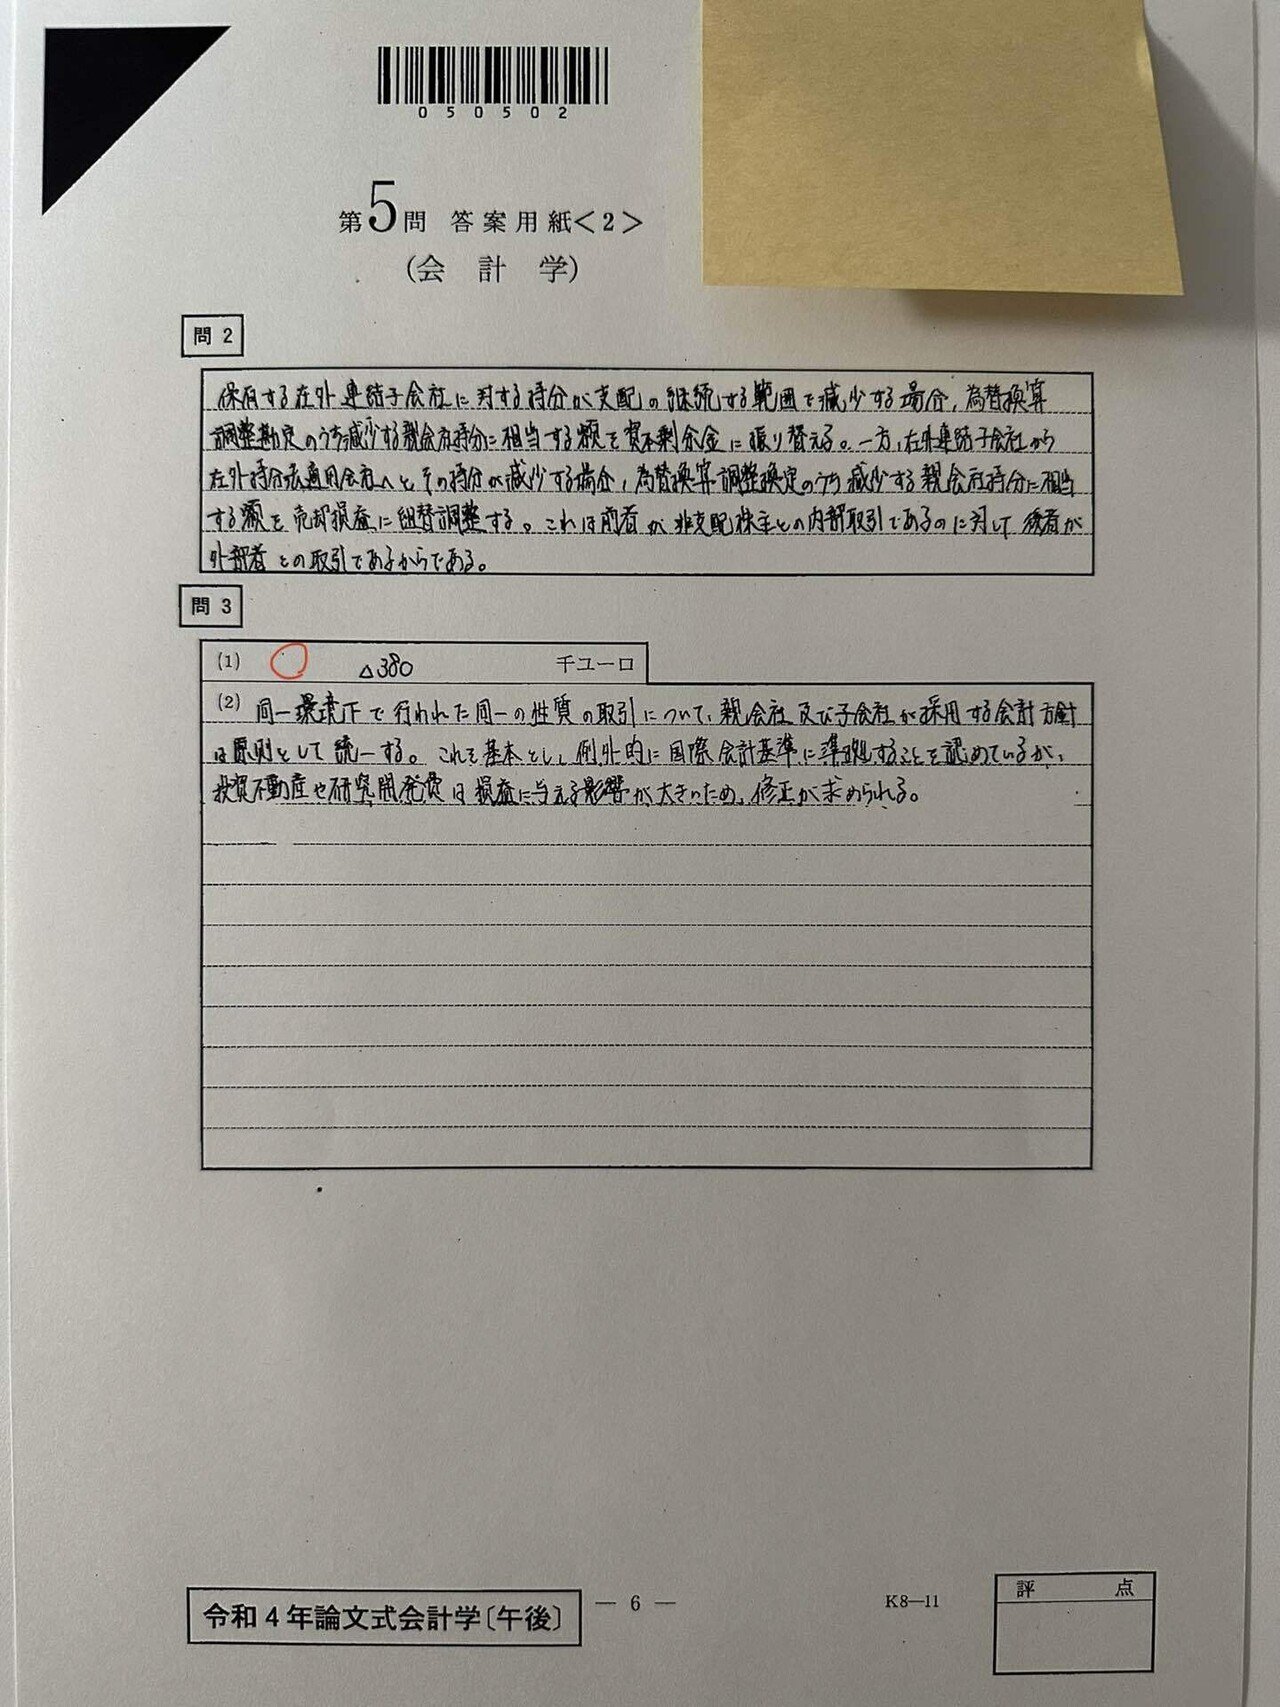 050502
第5問 答案用紙<2>
(会計学)
問2
保有する在外連結子会社に対する持分が支配の継続する範囲で減少する場合、為替換算
調整勘定のうち減少する親会社持分に相当する額を資本剰余金に振り替える。一方、在外連結子会社から
在外持分法適用会社へとその持分が減少する場合、為替換算調整換定のうち減少する親会社持分に相当
する額を売却損益に組替調整する。これは前者が非支配株主との内部取引であるのに対して後者が
外部者との取引であるからである。
問3
(1) △380 千ユーロ
(2) 同一環境下で行われた同一の性質の取引について、親会社及び子会社が採用する会計方針
は原則として統一する。これを基本とし、例外的に国際会計基準に準拠することを認めているが、
投資不動産や研究開発費は損益に与える影響が大きいため、修正が求められる。
令和4年論文式会計学〔午後〕
― 6 ―
K8―11
評点